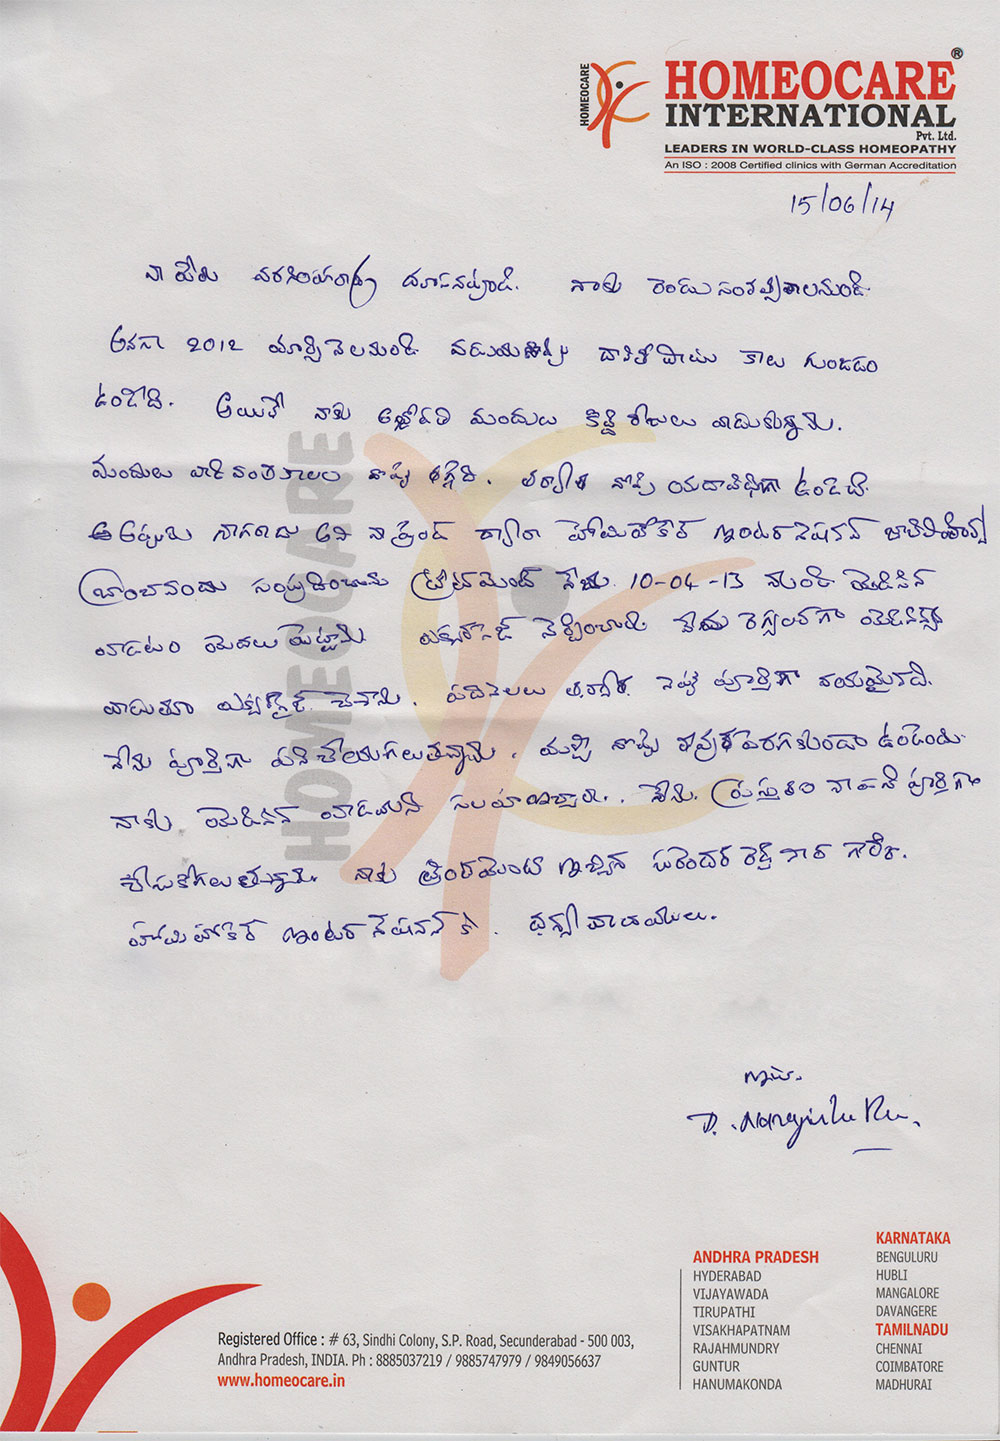 HOMEOCARE
HOMEOCARE®
INTERNATIONAL
Pvt. Ltd.
LEADERS IN WORLD-CLASS HOMEOPATHY
An ISO : 2008 Certified clinics with German Accreditation
15/06/14
నా పేరు నరసింహరాజు నాకు రెండు సంవత్సరాలనుండి
అనగా 2012 మార్చి నెలనుండి కాలు గుంజడం
ఉండేది. అయితే నాకు అల్లోపతి మందులు కొన్ని రోజులు వాడుకున్నాను.
మందులు వాడినంతకాలం నొప్పి తగ్గేది. తర్వాత నొప్పి యదావిధిగా ఉండేది.
అప్పుడు నా ఫ్రెండ్ ద్వారా హోమియోకేర్ ఇంటర్నేషనల్
బ్రాంచ్‌నందు సంప్రదించాను ట్రీట్‌మెంట్ 10-04-13 నుండి మెడిసిన్
వాడటం మొదలు పెట్టాను రెగ్యులర్‌గా మెడిసిన్స్
వాడుతూ చేశాను. పదినెలలు తర్వాత నొప్పి పూర్తిగా నయమైనది.
నేను పూర్తిగా పని చేయగలుతున్నాను. మళ్ళీ నొప్పి పెరగకుండా ఉండేందుకు
నాకు మెడిసిన్ వాడమని సలహాఇచ్చారు. నేను ప్రస్తుతం నా పని పూర్తిగా
చేసుకోగలుతున్నాను. నాకు ట్రీట్‌మెంట్ ఇచ్చిన రెడ్డి గారి
హోమియోకేర్ ఇంటర్నేషనల్ కి. ధన్యవాదములు.
ఇట్లు.
HOMEOCARE
Registered Office : # 63, Sindhi Colony, S.P. Road, Secunderabad - 500 003,
Andhra Pradesh, INDIA. Ph : 8885037219 / 9885747979 / 9849056637
www.homeocare.in
ANDHRA PRADESH
HYDERABAD
VIJAYAWADA
TIRUPATHI
VISAKHAPATNAM
RAJAHMUNDRY
GUNTUR
HANUMAKONDA
KARNATAKA
BENGULURU
HUBLI
MANGALORE
DAVANGERE
TAMILNADU
CHENNAI
COIMBATORE
MADHURAI